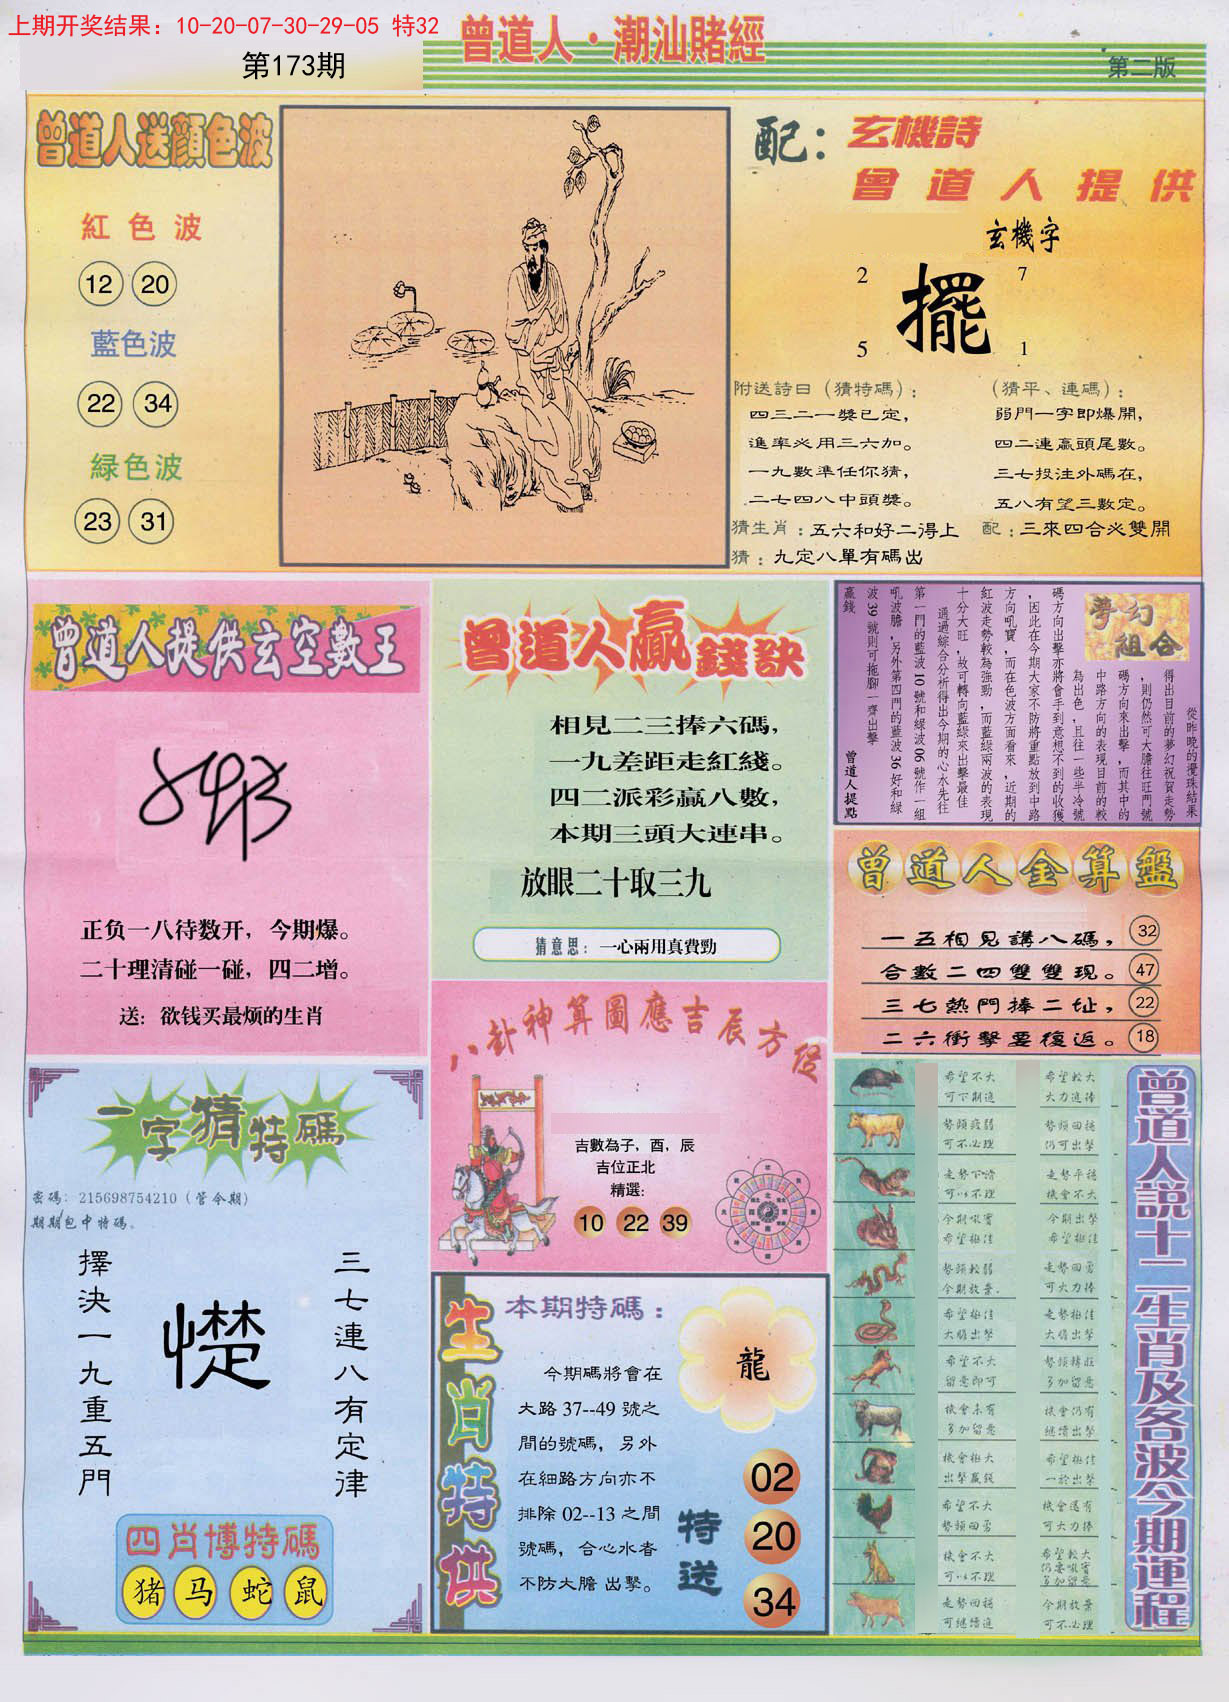 上期开奖结果：10-20-07-30-29-05 特32
第173期
曾道人·潮汕賭經
第二版
曾道人送顏色波
紅色波
12 20
藍色波
22 34
緑色波
23 31
配：玄機詩
曾道人提供
玄機字
2 7
擺
5 1
附送詩曰（猜特碼）：
四三二一獎已定，
進率必用三六加。
一九數準任你猜，
二七四八中頭獎。
（猜平、連碼）：
弱門一字即爆開，
四二連贏頭尾數。
三七投注外碼在，
五八有望三數定。
猜生肖：五六和好二得上
配：三來四合必雙開
猜：九定八單有碼出
曾道人提供玄空數王
正负一八待数开，今期爆。
二十理清碰一碰，四二增。
送：欲钱买最烦的生肖
曾道人贏錢訣
相見二三捧六碼，
一九差距走紅綫。
四二派彩贏八數，
本期三頭大連串。
放眼二十取三九
猜意思：一心兩用真費勁
夢幻組合
從昨晚的攪珠結果
得出目前的夢幻祝賀走勢
，則仍然可大膽往旺門號
碼方向來出擊，而其中的
中路方向的表現目前的較
為出色，且往一些半冷號
碼方向出擊亦將會手到意想不到的收獲
，因此在今期大家不防將重點放到中路
方向吼寶，而在色波方面看來，近期的
紅波走勢較為強勁，而藍綠兩波的表現
十分大旺，故可轉向藍綠來出擊最佳
通過綜合分析得出今期的心水先往
第一門的藍波10號和緑波06號作一組
吼波膽，另外第四門的藍波36好和綠
波39號則可拖腳一齊出擊
贏錢
曾道人提點
曾道人金算盤
一五相見講八碼， 32
合數二四雙雙現。 47
三七熱門捧二址， 22
二六衝擊要復返。 18
八卦神算圖應吉辰方位
吉數為子，酉，辰
吉位正北
精選：
10 22 39
一字猜特碼
密碼：215698754210（管令期）
期期包中特碼。
擇決一九重五門
三七連八有定律
憷
四肖博特碼
猪 马 蛇 鼠
生肖特供
本期特碼：
龍
今期碼將會在
大路37--49號之
間的號碼，另外
在細路方向亦不
排除02--13之間
號碼，合心水者
不防大膽 出擊。
特送
02
20
34
曾道人説十二生肖及各波今期運程
希望不大 希望較大
可下期進 大力進捧
勢頭疲弱 勢頭回穩
可不必理 仍可出擊
走勢下滑 走勢平穩
可以不理 機會不大
今期吼寶 今期出擊
希望極佳 希望極佳
勢頭較弱 走勢回勇
今期放棄. 可大力捧
希望極佳 走勢極佳
大膽出擊 大膽出擊
希望不大 勢頭轉旺
留意即可 多加留意
機會未有 機會仍有
多加留意 繼續出擊
機會極大 希望極佳
出擊贏錢 一於出擊
希望不大 機會還有
勢頭回勇 可大力捧
機會不大 希望較大
可以不理 仍要吼實
多加留意
走勢回穩 今期放棄
可繼續進 可不必理